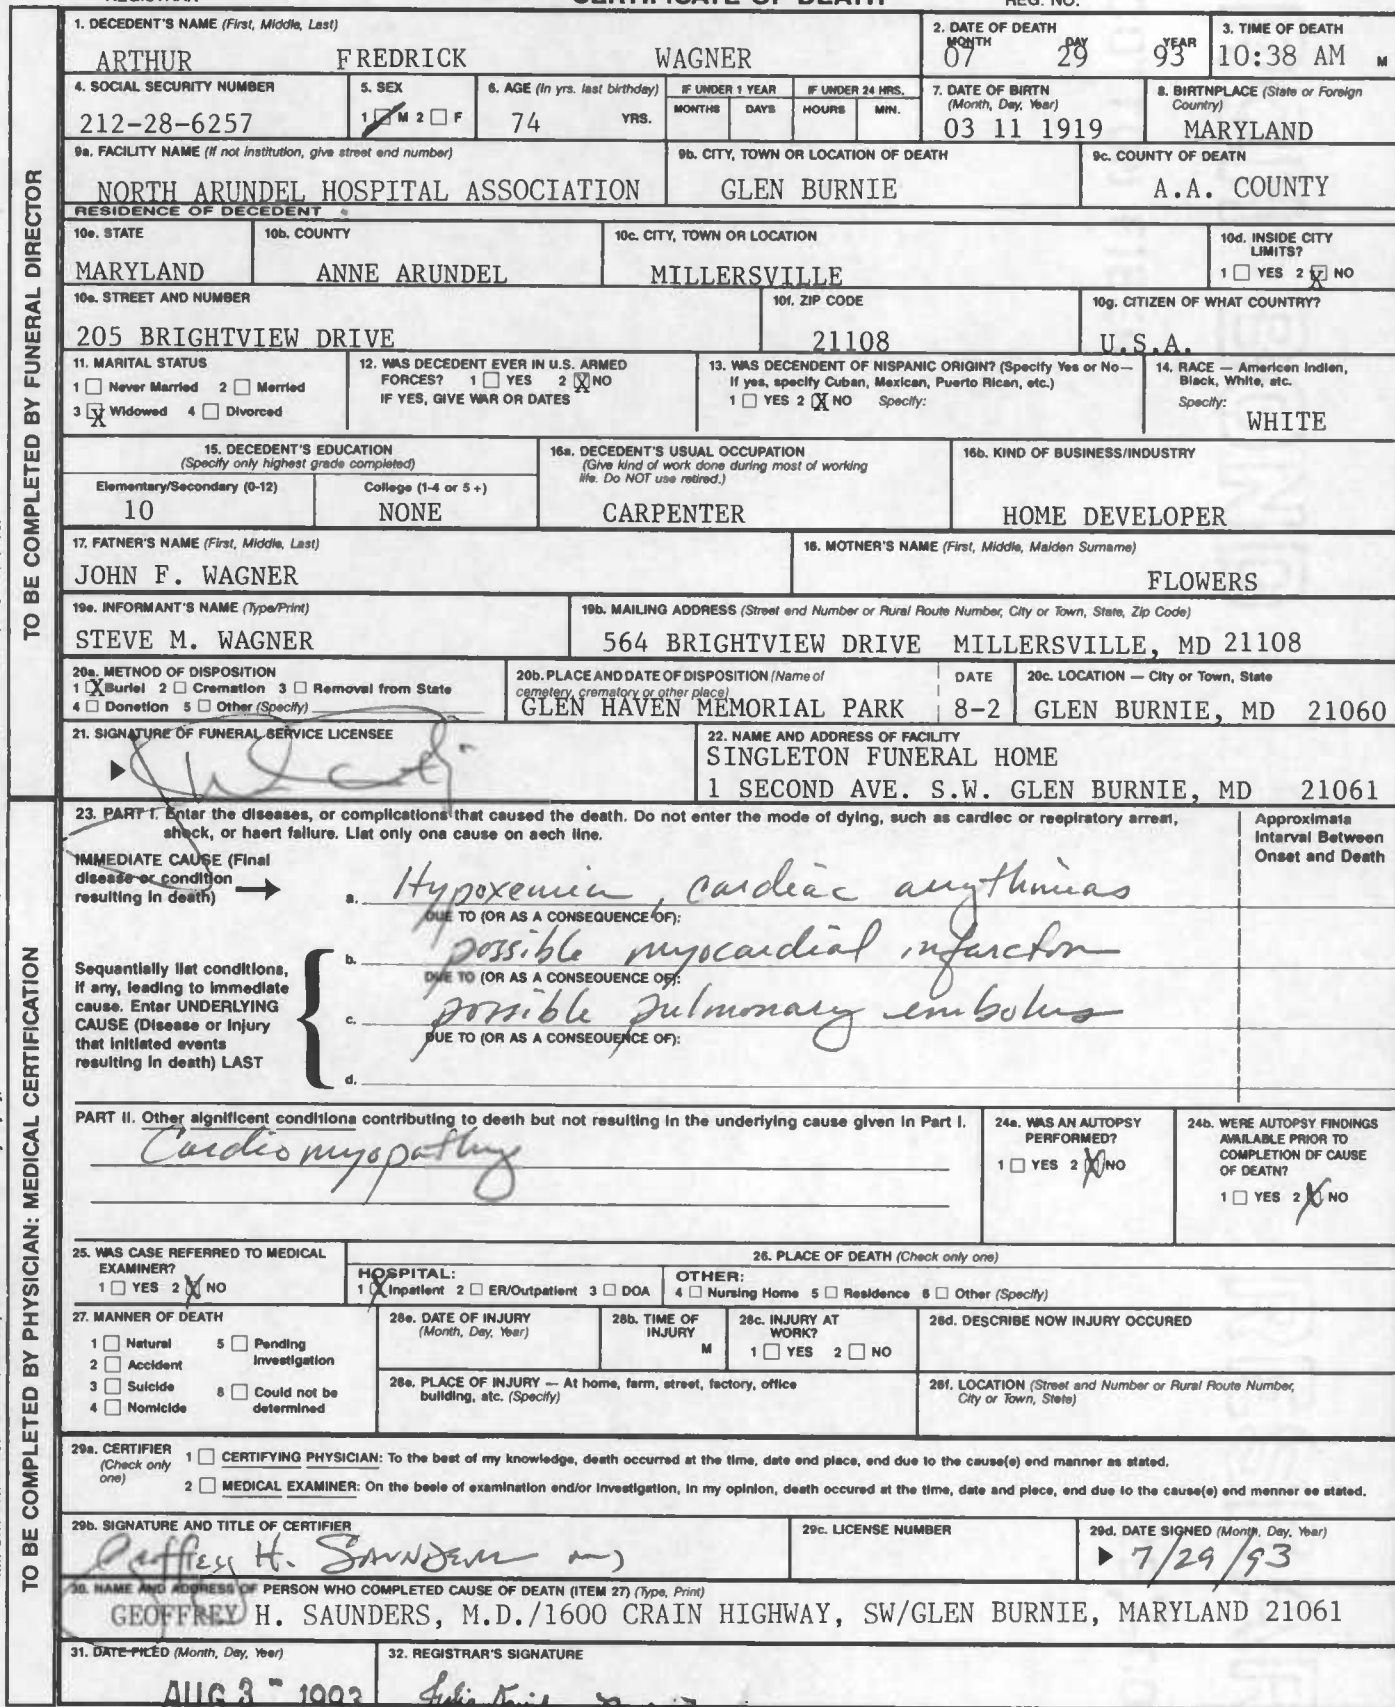 CERTIFICATE OF DEATH
REG. NO.
TO BE COMPLETED BY FUNERAL DIRECTOR
1. DECEDENT'S NAME (First, Middle, Last)
ARTHUR FREDRICK WAGNER
2. DATE OF DEATH
MONTH DAY YEAR
07 29 93
3. TIME OF DEATH
10:38 AM M
4. SOCIAL SECURITY NUMBER
212-28-6257
5. SEX
1 M 2 F
6. AGE (In yrs. last birthday)
74 YRS.
IF UNDER 1 YEAR
MONTHS DAYS
IF UNDER 24 HRS.
HOURS MIN.
7. DATE OF BIRTN
(Month, Day, Year)
03 11 1919
8. BIRTNPLACE (State or Foreign
Country)
MARYLAND
9a. FACILITY NAME (If not institution, give street end number)
NORTH ARUNDEL HOSPITAL ASSOCIATION
9b. CITY, TOWN OR LOCATION OF DEATH
GLEN BURNIE
9c. COUNTY OF DEATN
A.A. COUNTY
RESIDENCE OF DECEDENT
10e. STATE
MARYLAND
10b. COUNTY
ANNE ARUNDEL
10c. CITY, TOWN OR LOCATION
MILLERSVILLE
10d. INSIDE CITY
LIMITS?
1 YES 2 X NO
10e. STREET AND NUMBER
205 BRIGHTVIEW DRIVE
10f. ZIP CODE
21108
10g. CITIZEN OF WHAT COUNTRY?
U.S.A.
11. MARITAL STATUS
1 Never Married 2 Merried
3 X Widowed 4 Divorced
12. WAS DECEDENT EVER IN U.S. ARMED
FORCES? 1 YES 2 X NO
IF YES, GIVE WAR OR DATES
13. WAS DECENDENT OF NISPANIC ORIGIN? (Specify Yes or No—
If yes, specify Cuban, Mexican, Puerto Rican, etc.)
1 YES 2 X NO Specify:
14. RACE — American Indien,
Black, White, etc.
Specify:
WHITE
15. DECEDENT'S EDUCATION
(Specify only highest grade completed)
Elementary/Secondary (0-12)
10
College (1-4 or 5+)
NONE
16a. DECEDENT'S USUAL OCCUPATION
(Give kind of work done during most of working
life. Do NOT use retired.)
CARPENTER
16b. KIND OF BUSINESS/INDUSTRY
HOME DEVELOPER
17. FATNER'S NAME (First, Middle, Last)
JOHN F. WAGNER
18. MOTNER'S NAME (First, Middle, Maiden Surname)
FLOWERS
19e. INFORMANT'S NAME (Type/Print)
STEVE M. WAGNER
19b. MAILING ADDRESS (Street end Number or Rural Route Number, City or Town, State, Zip Code)
564 BRIGHTVIEW DRIVE MILLERSVILLE, MD 21108
20a. METNOD OF DISPOSITION
1 X Buriel 2 Cremation 3 Removal from State
4 Donetion 5 Other (Specify)
20b. PLACE AND DATE OF DISPOSITION (Name of
cemetery, crematory or other place)
GLEN HAVEN MEMORIAL PARK
DATE
8-2
20c. LOCATION — City or Town, State
GLEN BURNIE, MD 21060
21. SIGNATURE OF FUNERAL SERVICE LICENSEE
22. NAME AND ADDRESS OF FACILITY
SINGLETON FUNERAL HOME
1 SECOND AVE. S.W. GLEN BURNIE, MD 21061
TO BE COMPLETED BY PHYSICIAN: MEDICAL CERTIFICATION
23. PART I. Enter the diseases, or complications that caused the death. Do not enter the mode of dying, such as cardiec or reepiratory arreat,
shock, or haert failure. Liat only ona cause on aech line.
Approximata
Intarval Between
Onset and Death
IMMEDIATE CAUSE (Final
disease or condition
resulting in death)
a. Hypoxemia, cardiac arrythmias
DUE TO (OR AS A CONSEQUENCE OF):
b. possible myocardial infarction
DUE TO (OR AS A CONSEOUENCE OF):
c. possible pulmonary embolus
DUE TO (OR AS A CONSEOUENCE OF):
d.
Sequantially liat conditions,
if any, leading to immediate
cause. Entar UNDERLYING
CAUSE (Disease or injury
that initiated events
resulting in death) LAST
PART II. Other aignificent conditiona contributing to deeth but not resulting in the underlying cause given in Part I.
Cardiomyopathy
24a. WAS AN AUTOPSY
PERFORMED?
1 YES 2 X NO
24b. WERE AUTOPSY FINDINGS
AVAILABLE PRIOR TO
COMPLETION OF CAUSE
OF DEATN?
1 YES 2 X NO
25. WAS CASE REFERRED TO MEDICAL
EXAMINER?
1 YES 2 X NO
26. PLACE OF DEATH (Check only one)
HOSPITAL:
1 X Inpatient 2 ER/Outpatient 3 DOA
OTHER:
4 Nursing Home 5 Residence 6 Other (Specify)
27. MANNER OF DEATH
1 Natural 5 Pending
Investigation
2 Accident
3 Suicide 8 Could not be
determined
4 Nomicide
28e. DATE OF INJURY
(Month, Day, Year)
28b. TIME OF
INJURY
M
28c. INJURY AT
WORK?
1 YES 2 NO
28d. DESCRIBE NOW INJURY OCCURED
28e. PLACE OF INJURY — At home, farm, street, factory, office
building, atc. (Specify)
28f. LOCATION (Street and Number or Rural Route Number,
City or Town, State)
29a. CERTIFIER
(Check only
one)
1 CERTIFYING PHYSICIAN: To the best of my knowledge, death occurred at the time, date end place, end due to the cause(e) end manner as stated.
2 MEDICAL EXAMINER: On the beele of examination end/or investigation, in my opinion, death occured at the time, date and plece, end due to the cause(e) end menner ee stated.
29b. SIGNATURE AND TITLE OF CERTIFIER
Geoffrey H. Saunders MD
29c. LICENSE NUMBER
29d. DATE SIGNED (Month, Day, Year)
7/29/93
30. NAME AND ADDRESS OF PERSON WHO COMPLETED CAUSE OF DEATN (ITEM 27) (Type, Print)
GEOFFREY H. SAUNDERS, M.D./1600 CRAIN HIGHWAY, SW/GLEN BURNIE, MARYLAND 21061
31. DATE FILED (Month, Day, Year)
AUG 3 - 1993
32. REGISTRAR'S SIGNATURE